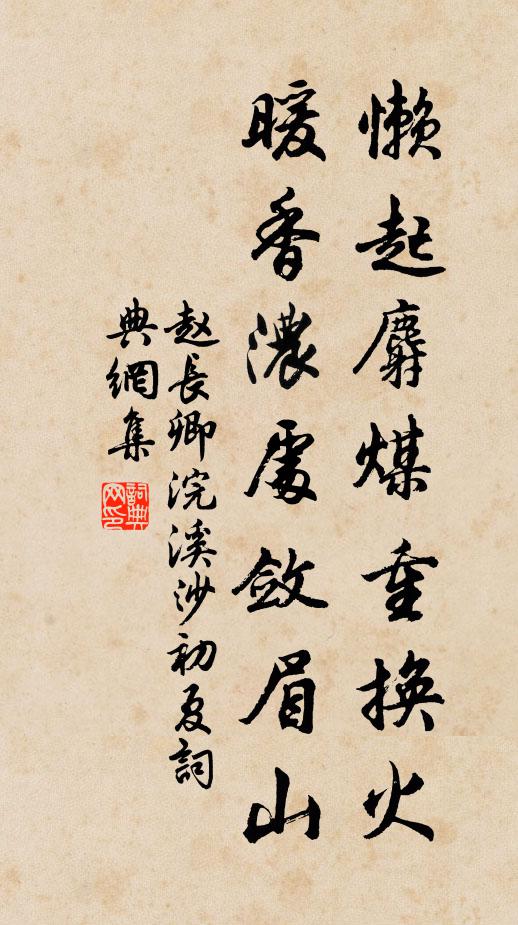 懒起麝煤重换火
暖香濃處斂眉山
赵長卿浣溪沙初夏詞
典網集
詞典
网印